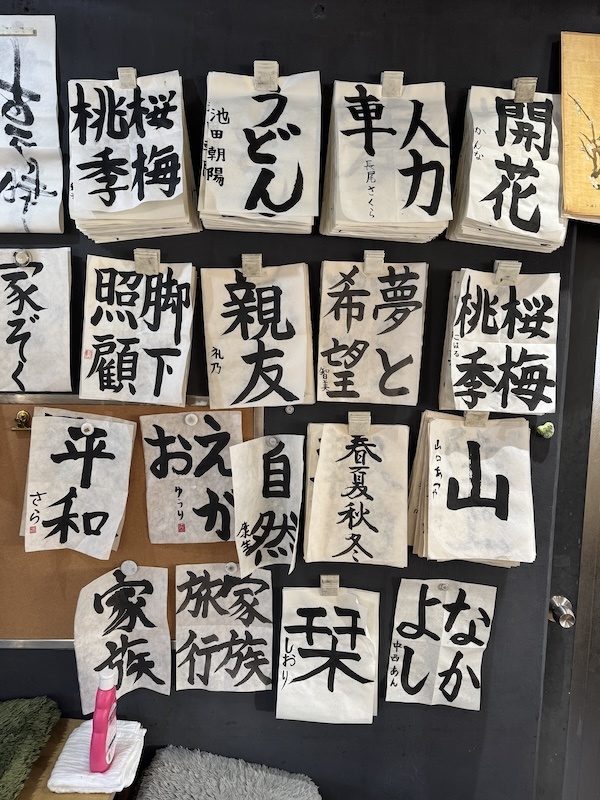 桜梅
桃季
うどん
池田朝陽
人力
車
長尾さくら
開花
かんな
家ぞく
脚下
照顧
親友
礼乃
夢と
希望
智美
桜梅
桃季
こはる
平和
さら
えが
お
ゆうり
自然
春夏秋冬
山
山口あつや
家族
家族
旅行
栞
しおり
なか
よし
中西あん